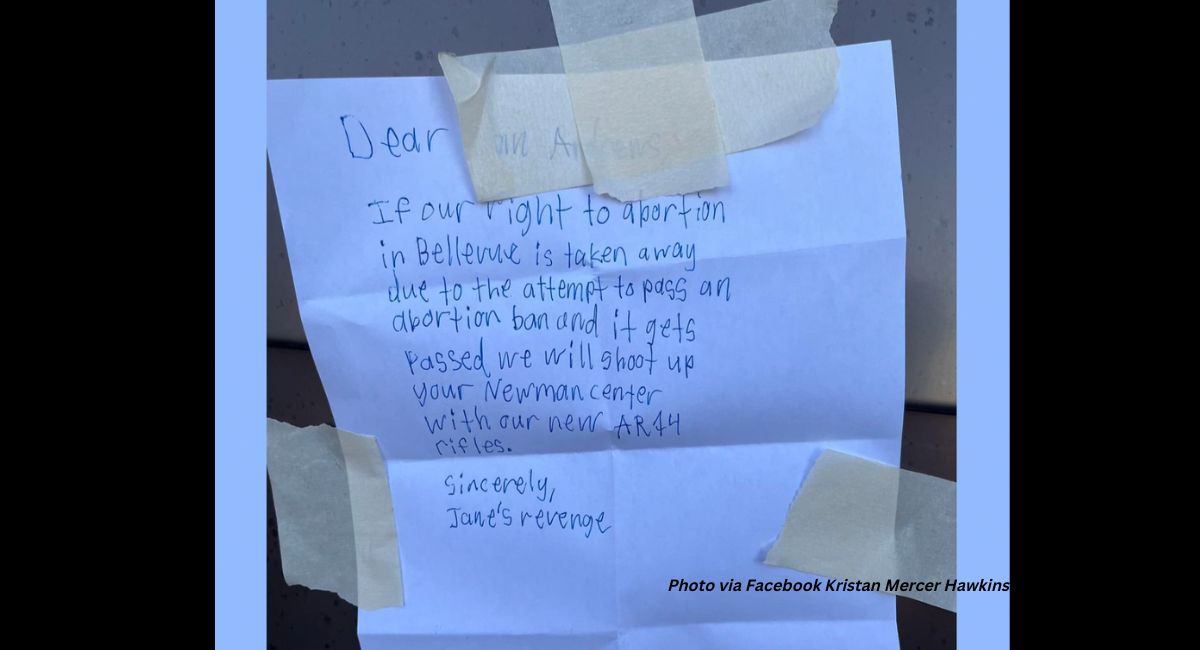 Dear
If our right to abortion
in Bellevue is taken away
due to the attempt to pass an
abortion ban and it gets
passed we will shoot up
your Newman center
with our new AR14
rifles.
Sincerely,
Jane's revenge
Photo via Facebook Kristan Mercer Hawkins